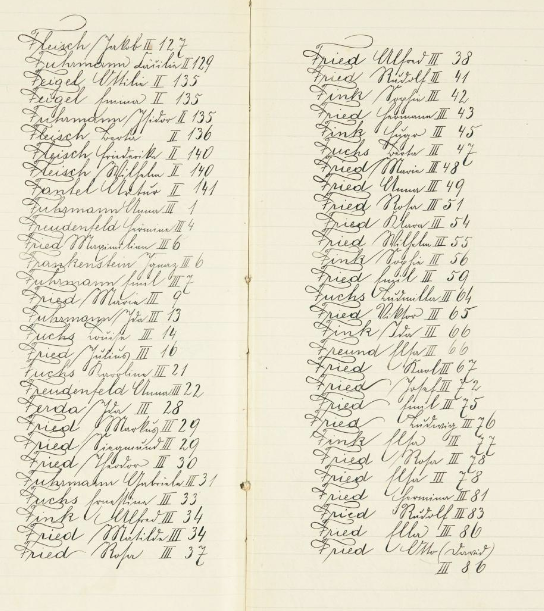 Fleisch Jakob II 127
Fuhrmann Cäcilie II 129
Feigel Ottilie II 135
Feigel Emma II 135
Fuhrmann Isidor II 135
Fleisch Berta II 136
Fleisch Friederike II 140
Fleisch Wilhelm II 140
Fantel Artur II 141
Fuhrmann Anna III 1
Freudenfeld Hermine III 4
Fried Maximilian III 6
Frankenstein Ignaz III 6
Fuhrmann Emil III 7
Fried Marie III 9
Fuhrmann Ida III 13
Fuchs Louise III 14
Fried Julius III 16
Fuchs Karoline III 21
Freudenfeld Anna III 22
Ferda Ida III 28
Fried Markus III 29
Fried Siegmund III 29
Fried Theodor III 30
Fuhrmann Gabriele III 31
Fuchs Ernestine III 33
Fink Alfred III 34
Fried Matilde III 34
Fried Rosa III 37
Fried Alfred III 38
Fried Rudolf III 41
Fink Sophie III 42
Fried Hermann III 43
Fink Hugo III 45
Fuchs Berta III 47
Fried Marie III 48
Fried Anna III 49
Fried Rosa III 51
Fried Klara III 54
Fried Wilhelm III 55
Fink Sophie III 56
Fried Emil III 59
Fuchs Ludmilla III 64
Fried Viktor III 65
Fink Ida III 66
Freund Elsa III 66
Fried Karl III 67
Fried Josef III 72
Fried Emil III 75
Fried Ludwig III 76
Fink Elsa III 77
Fried Rosa III 78
Fried Elsa III 78
Fried Hermine III 81
Fried Rudolf III 83
Fried Ella III 86
Fried Otto (David)
III 86